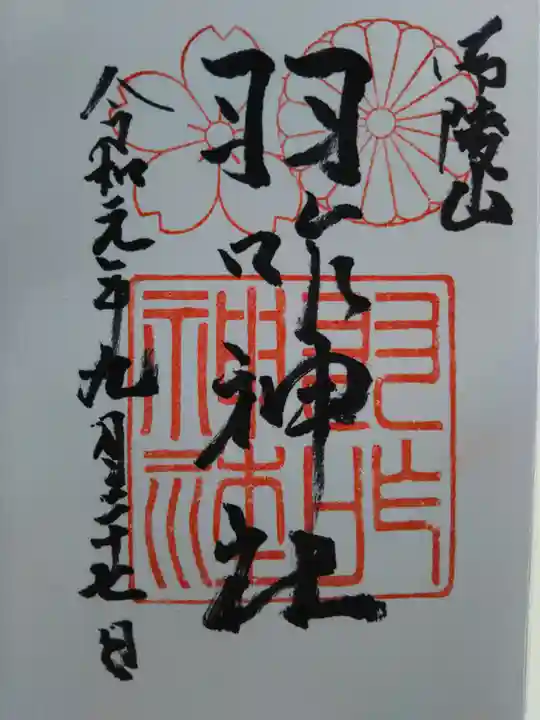 御陵山
羽咋神社
羽咋神社
令和元年九月二十七日